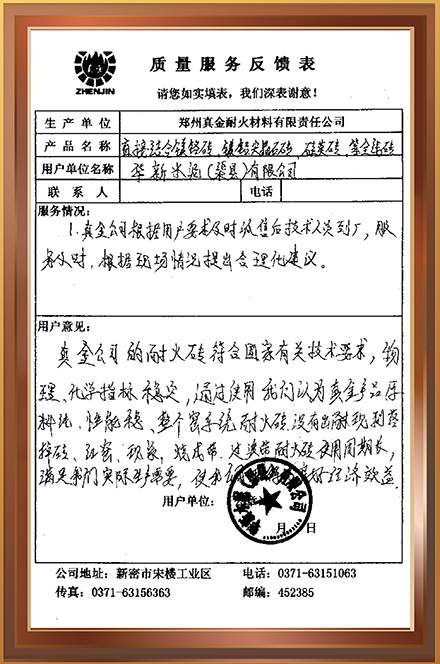 ZHENJIN
质量服务反馈表
请您如实填表，我们深表谢意！
生产单位 郑州真金耐火材料有限责任公司
产品名称 直接结合镁铬砖、镁铝尖晶石砖、硅莫砖、
用户单位名称 华新水泥（渠县）有限公司
联系人 电话
服务情况：
1.真金公司根据用户要求及时派售后技术人员到厂，服
务及时，根据现场情况提出合理化建议。
用户意见：
真金公司的耐火砖符合国家有关技术要求，物
理、化学指标稳定，通过使用我们认为真金产品原
料纯、性能稳、整个窑系统耐火砖没有出现
掉砖、红窑、现象，烧成带、过渡带耐火砖使用周期长，
满足我们实际生产需要，使我 经济效益
用户单位：
月 日
公司地址：新密市宋楼工业区 电话：0371-63151063
传真：0371-63156363 邮编：452385